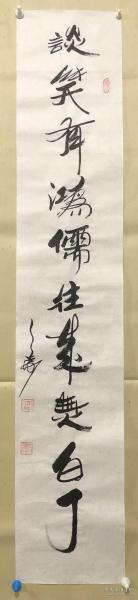 談笑有鴻儒往來無白丁